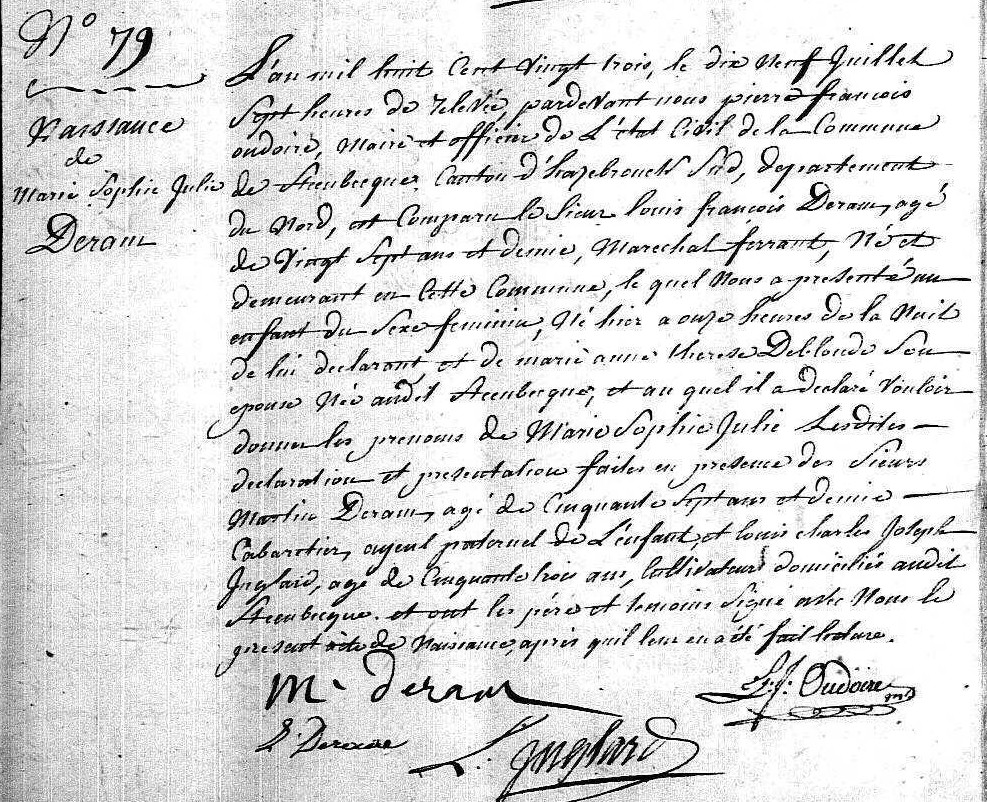 N° 79
Naissance
de
Marie Sophie Julie
Deram
L'an mil huit Cent Vingt trois, le dix Neuf Juillet
Sept heures de relevée, pardevant nous pierre françois
oudoire, Maire et officier de L'état Civil de la Commune
de Steenbecque, Canton d'hazebrouck Sud, departement
du Nord, est Comparu le Sieur louis françois Deram, agé
de Vingt Sept ans et demie, Marechal ferrant, Né et
demeurant en Cette Commune, le quel Nous a presenté un
enfant du Sexe feminin, Né hier a onze heures de la Nuit
de lui declarant, et de marie anne therese Deblonde Son
epouse Née audit Steenbecque, et au quel il a declaré Vouloir
donner les prenoms de Marie Sophie Julie Lesdites
declaration et presentation faites en presence des Sieurs
Martin Deram, agé de Cinquante Sept ans et demie
Cabaretier, ayeul paternel de L'enfant, et louis charles Joseph
Inglard, agé de Cinquante trois ans, Cultivateur domiciliés audit
Steenbecque. et ont les pére et temoins Signé avec Nous le
present acte de Naissance, après quil leur en a été fait lecture.
M. deram
P. f. Oudoire
L. Deram
L. Inglard